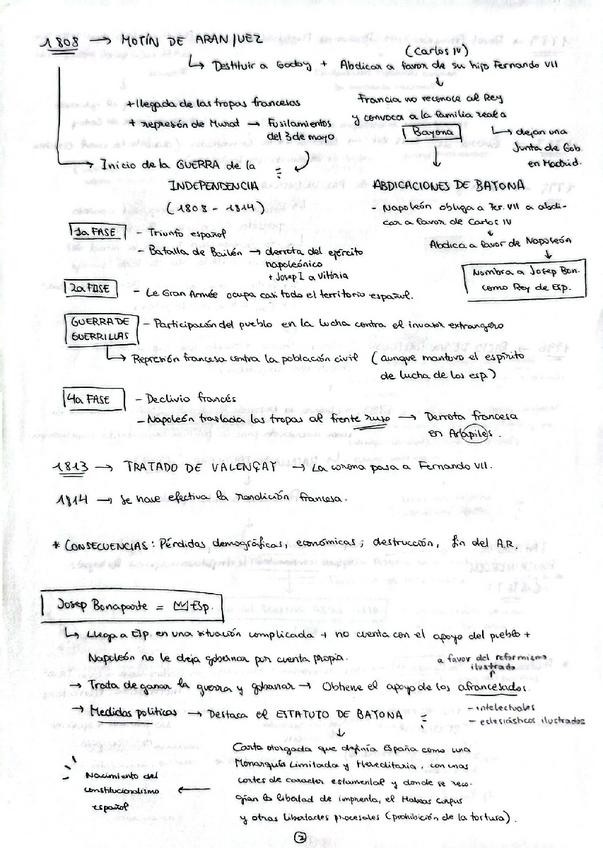 1808 → MOTÍN DE ARANJUEZ
(Carlos IV)
↳ Destituir a Godoy + Abdicar a favor de su hijo Fernando VII
+ llegada de las tropas francesas
+ represión de Murat → Fusilamientos
del 3 de mayo
Francia no reconoce al Rey
y convoca a la familia real a
Bayona
↳ dejan una
Junta de Gob
en Madrid.
→ Inicio de la GUERRA de la
INDEPENDENCIA
(1808 - 1814)
ABDICACIONES DE BAYONA
- Napoleón obliga a Fer. VII a abdi-
car a favor de Carlos IV
Abdica a favor de Napoleón
Nombra a Josep Bon.
como Rey de Esp.
1a FASE - Triunfo español
- Batalla de Bailén → derrota del ejército
napoleónico
+ Josep I a Vitoria
2a FASE - Le Gran Armée ocupa casi todo el territorio español.
GUERRA DE
GUERRILLAS - Participación del pueblo en la lucha contra el invasor extrangero
↳ Represión francesa contra la población civil (aunque mantuvo el espíritu
de lucha de los esp.)
4a FASE - Declivio francés
- Napoleón traslada las tropas al frente ruso → Derrota francesa
en Arapiles.
1813 → TRATADO DE VALENÇAY → La corona pasa a Fernando VII.
1814 → Se hase efectiva la rendición francesa.
* CONSECUENCIAS: Pérdidas demográficas, económicas; destrucción, fin del A.R.
Josep Bonaparte = Esp.
↳ Llega a Esp. en una situación complicada + no cuenta con el apoyo del pueblo +
Napoleón no le deja gobernar por cuenta propia.
a favor del reformismo
ilustrado
→ Trata de ganar la guerra y gobernar → Obtiene el apoyo de los afrancesados.
- intelectuales
- eclesiásticos ilustrados
→ Medidas políticas → Destaca el ESTATUTO DE BAYONA
Carta otorgada que definía España como una
Monarquía Limitada y Hereditaria, con unas
cortes de caracter estamental y donde se reco-
gían la libertad de imprenta, el Habeas Corpus
y otras libertades procesales (prohibición de la tortura).
Nacimiento del
constitucionalismo
español
2